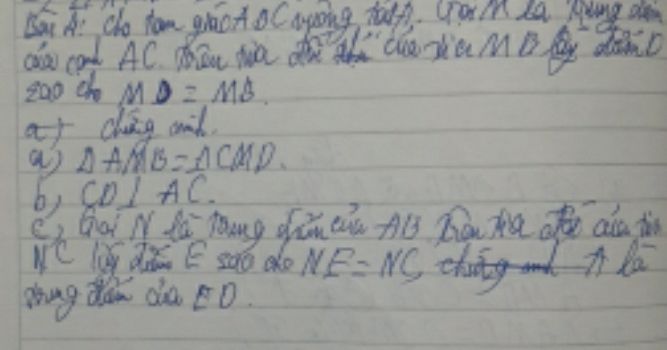 Bài 4: Cho tam giác ABC vuông tại A. Gọi M là trung điểm
của cạnh AC. Trên tia đối của tia MB lấy điểm D
sao cho MD = MB.
a) chứng minh.
a) ΔAMB = ΔCMD.
b) CD ⊥ AC.
c) Gọi N là trung điểm của AB. Trên tia đối của tia
NC lấy điểm E sao cho NE = NC, chứng minh A là
trung điểm của ED.